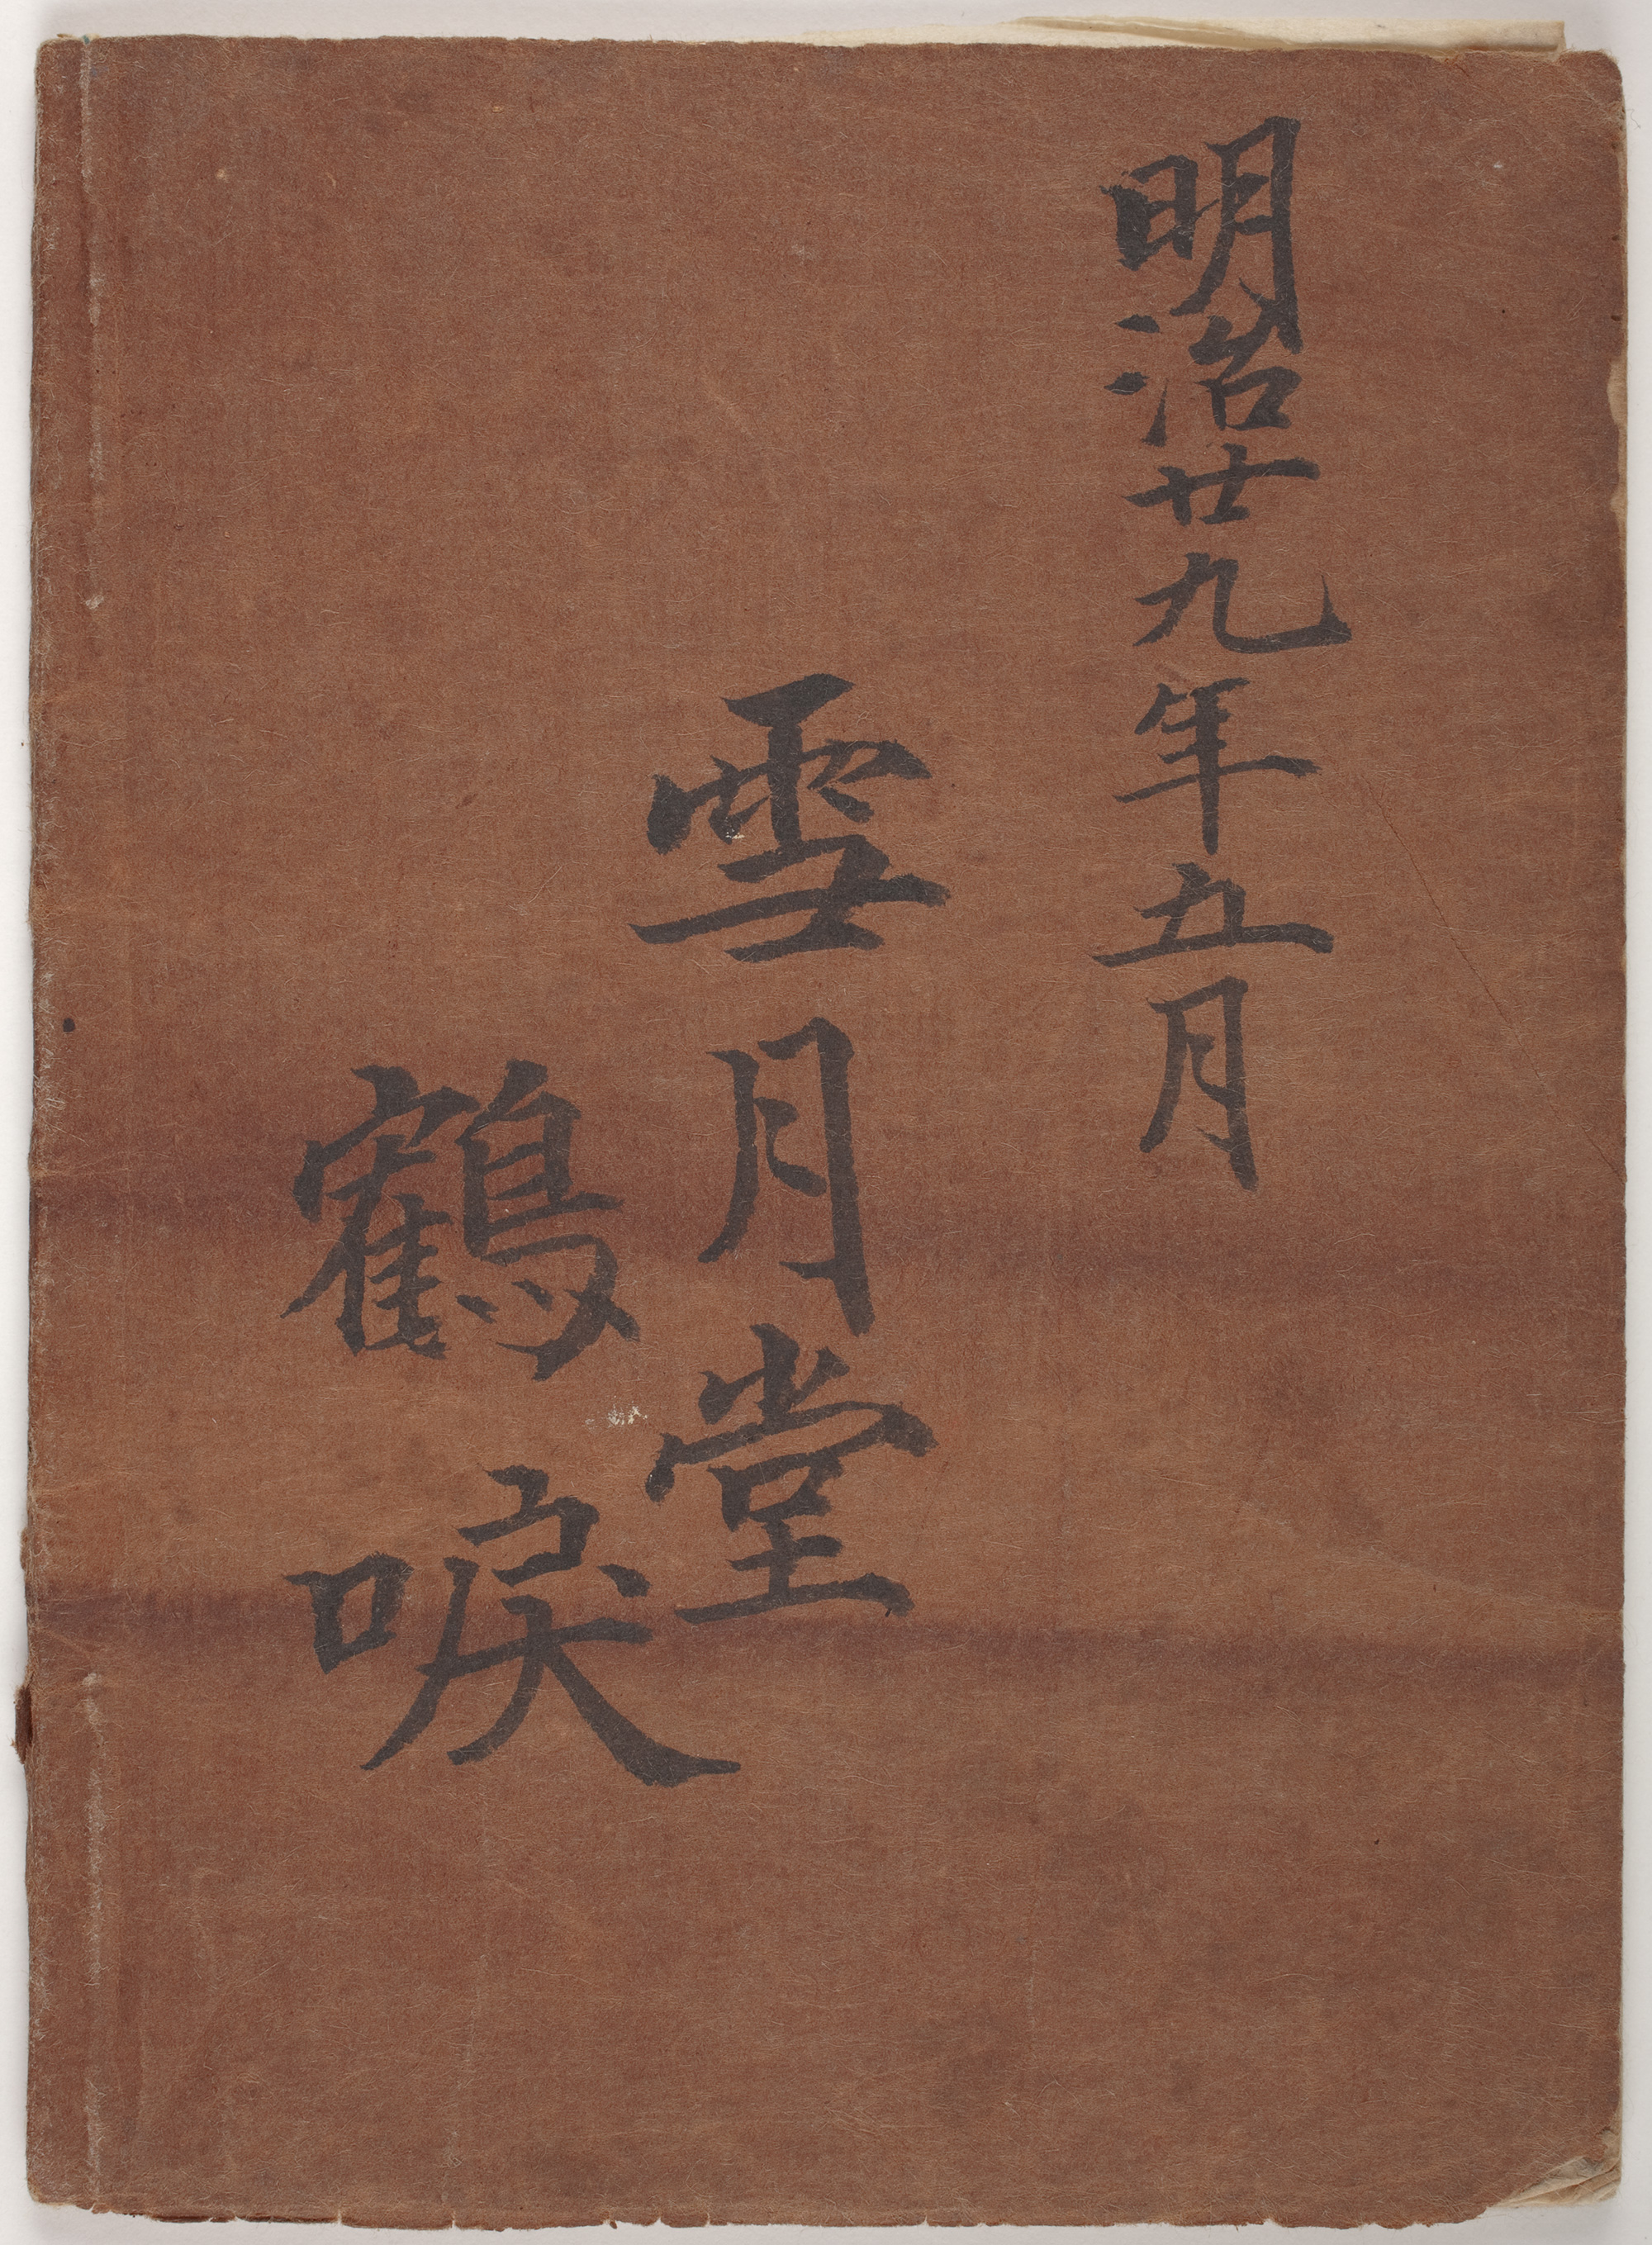 明治廿九年五月
雪月堂
鶴唳